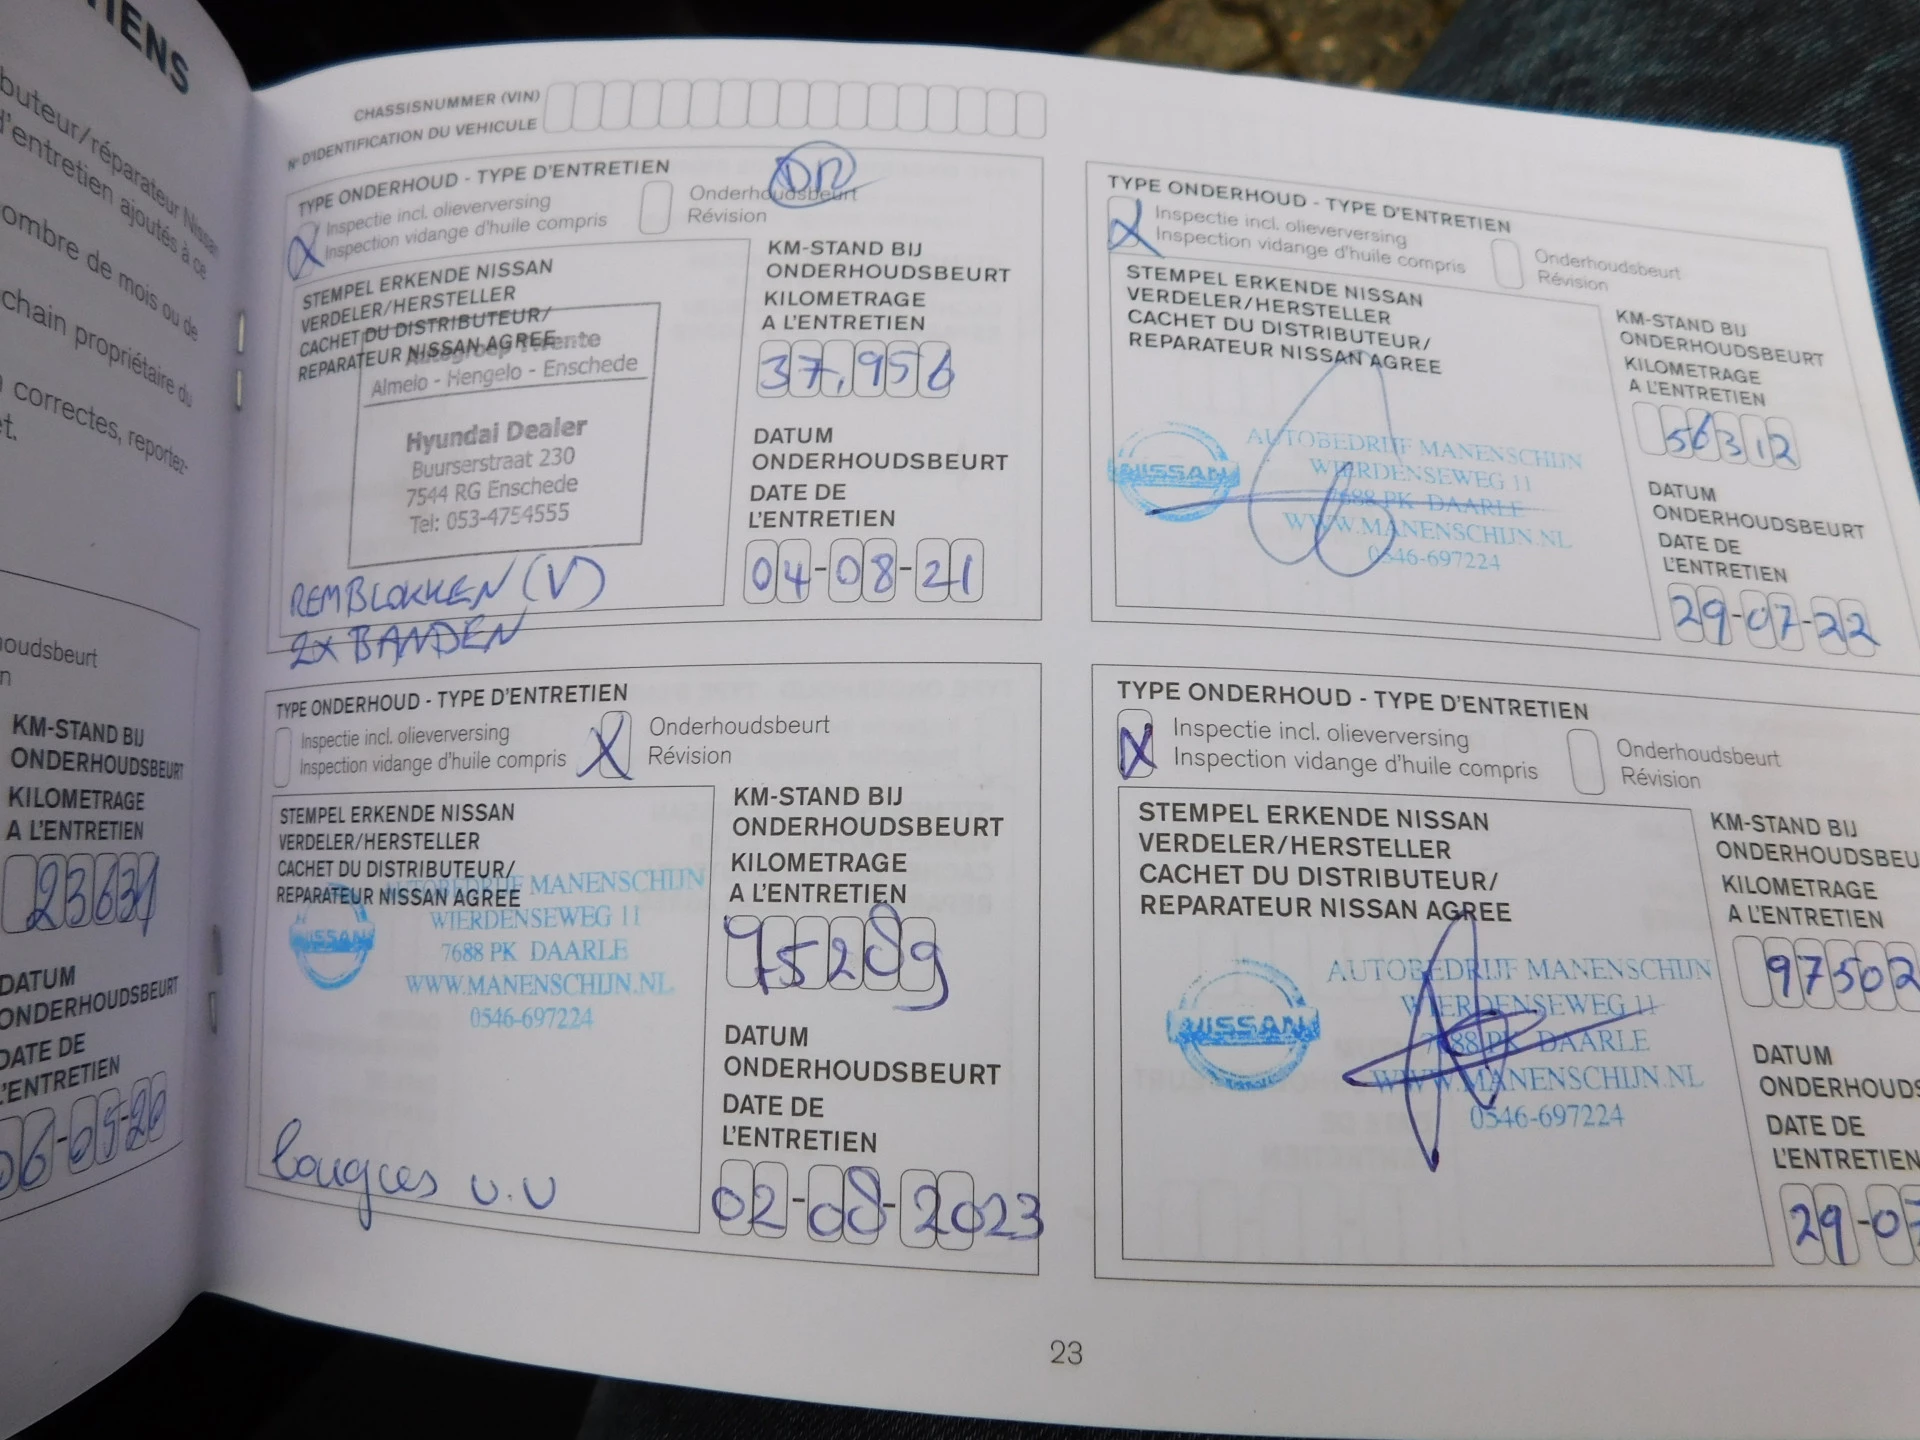 IENS
buteur/réparateur Nissan
d'entretien ajoutés à ce
ombre de mois ou de
chain propriétaire du
correctes, reportez-
et.
oudsbeurt
n
KM-STAND BIJ
ONDERHOUDSBEURT
KILOMETRAGE
A L'ENTRETIEN
23631
DATUM
ONDERHOUDSBEURT
DATE DE
L'ENTRETIEN
CHASSISNUMMER (VIN)
N° D'IDENTIFICATION DU VEHICULE
TYPE ONDERHOUD - TYPE D'ENTRETIEN
X
Inspectie incl. olieverversing
Inspection vidange d'huile compris
Onderhoudsbeurt
Révision
STEMPEL ERKENDE NISSAN
VERDELER/HERSTELLER
CACHET DU DISTRIBUTEUR/
REPARATEUR NISSAN AGREE
Autogroep Twente
Almelo - Hengelo - Enschede
Hyundai Dealer
Buurserstraat 230
7544 RG Enschede
Tel: 053-4754555
REMBLOKKEN (V)
2x BANDEN
KM-STAND BIJ
ONDERHOUDSBEURT
KILOMETRAGE
A L'ENTRETIEN
37,956
DATUM
ONDERHOUDSBEURT
DATE DE
L'ENTRETIEN
04-08-21
TYPE ONDERHOUD - TYPE D'ENTRETIEN
X
Inspectie incl. olieverversing
Inspection vidange d'huile compris
Onderhoudsbeurt
Révision
STEMPEL ERKENDE NISSAN
VERDELER/HERSTELLER
CACHET DU DISTRIBUTEUR/
REPARATEUR NISSAN AGREE
NISSAN
AUTOBEDRIJF MANENSCHIJN
WIERDENSEWEG 11
7688 PK DAARLE
WWW.MANENSCHIJN.NL
0546-697224
KM-STAND BIJ
ONDERHOUDSBEURT
KILOMETRAGE
A L'ENTRETIEN
56312
DATUM
ONDERHOUDSBEURT
DATE DE
L'ENTRETIEN
29-07-22
TYPE ONDERHOUD - TYPE D'ENTRETIEN
Inspectie incl. olieverversing
Inspection vidange d'huile compris
X
Onderhoudsbeurt
Révision
STEMPEL ERKENDE NISSAN
VERDELER/HERSTELLER
CACHET DU DISTRIBUTEUR/
REPARATEUR NISSAN AGREE
NISSAN
AUTOBEDRIJF MANENSCHIJN
WIERDENSEWEG 11
7688 PK DAARLE
WWW.MANENSCHIJN.NL
0546-697224
KM-STAND BIJ
ONDERHOUDSBEURT
KILOMETRAGE
A L'ENTRETIEN
75289
DATUM
ONDERHOUDSBEURT
DATE DE
L'ENTRETIEN
02-08-2023
TYPE ONDERHOUD - TYPE D'ENTRETIEN
X
Inspectie incl. olieverversing
Inspection vidange d'huile compris
Onderhoudsbeurt
Révision
STEMPEL ERKENDE NISSAN
VERDELER/HERSTELLER
CACHET DU DISTRIBUTEUR/
REPARATEUR NISSAN AGREE
NISSAN
AUTOBEDRIJF MANENSCHIJN
WIERDENSEWEG 11
7688 PK DAARLE
WWW.MANENSCHIJN.NL
0546-697224
KM-STAND BIJ
ONDERHOUDSBEU
KILOMETRAGE
A L'ENTRETIEN
97502
DATUM
ONDERHOUDS
DATE DE
L'ENTRETIEN
29-07
23